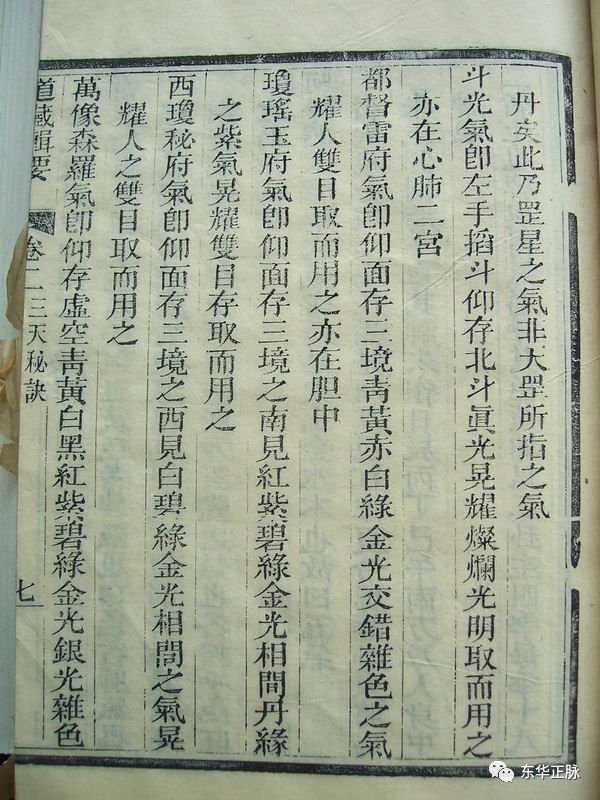 丹矣此乃罡星之氣非大罡所指之氣
斗光氣卽左手搯斗仰存北斗眞光晃耀燦爛光明取而用之
亦在心肺二宮
都督雷府氣卽仰面存三境靑黃赤白綠金光交錯雜色之氣
耀人雙目取而用之亦在胆中
瓊瑤玉府氣卽仰面存三境之南見紅紫碧綠金光相間丹綠
之紫氣晃耀雙目存取而用之
西瓊秘府氣卽仰面存三境之西見白碧綠金光相間之氣晃
耀人之雙目取而用之
萬像森羅氣卽仰存虛空靑黃白黑紅紫碧綠金光銀光雜色
道藏輯要 卷二 三天秘訣 七
东华正脉